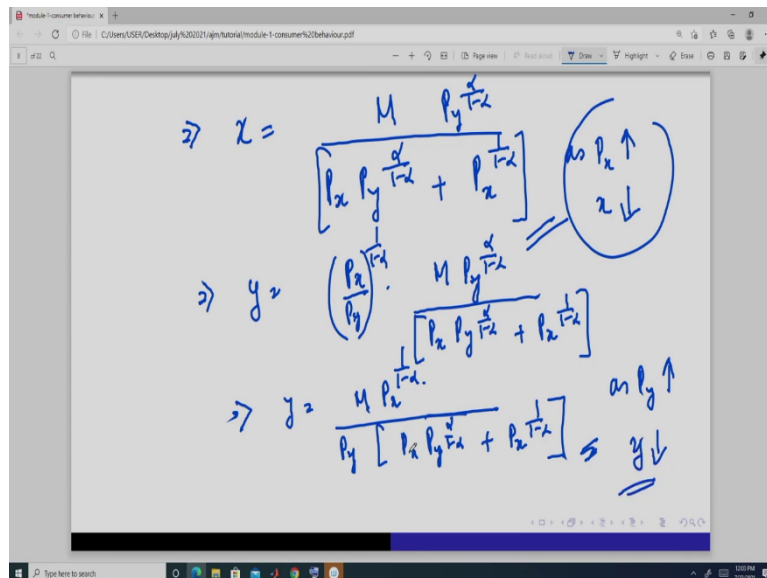 *module-1-consumer behaviour x +
File | C:/Users/USER/Desktop/july%202021/ajm/tutorial/module-1-consumer%20behaviour.pdf
8 of 22 Page view Read aloud Draw Highlight Erase
⇒ x = M P_y^{α/(1-α)} / [P_x P_y^{α/(1-α)} + P_x^{1/(1-α)}]
as P_x ↑
x ↓
⇒ y = (P_x/P_y)^{1/(1-α)} · M P_y^{α/(1-α)} / [P_x P_y^{α/(1-α)} + P_x^{1/(1-α)}]
⇒ y = M P_x^{1/(1-α)} / P_y [P_x P_y^{α/(1-α)} + P_x^{1/(1-α)}]
as P_y ↑
y ↓
Type here to search
12:03 PM